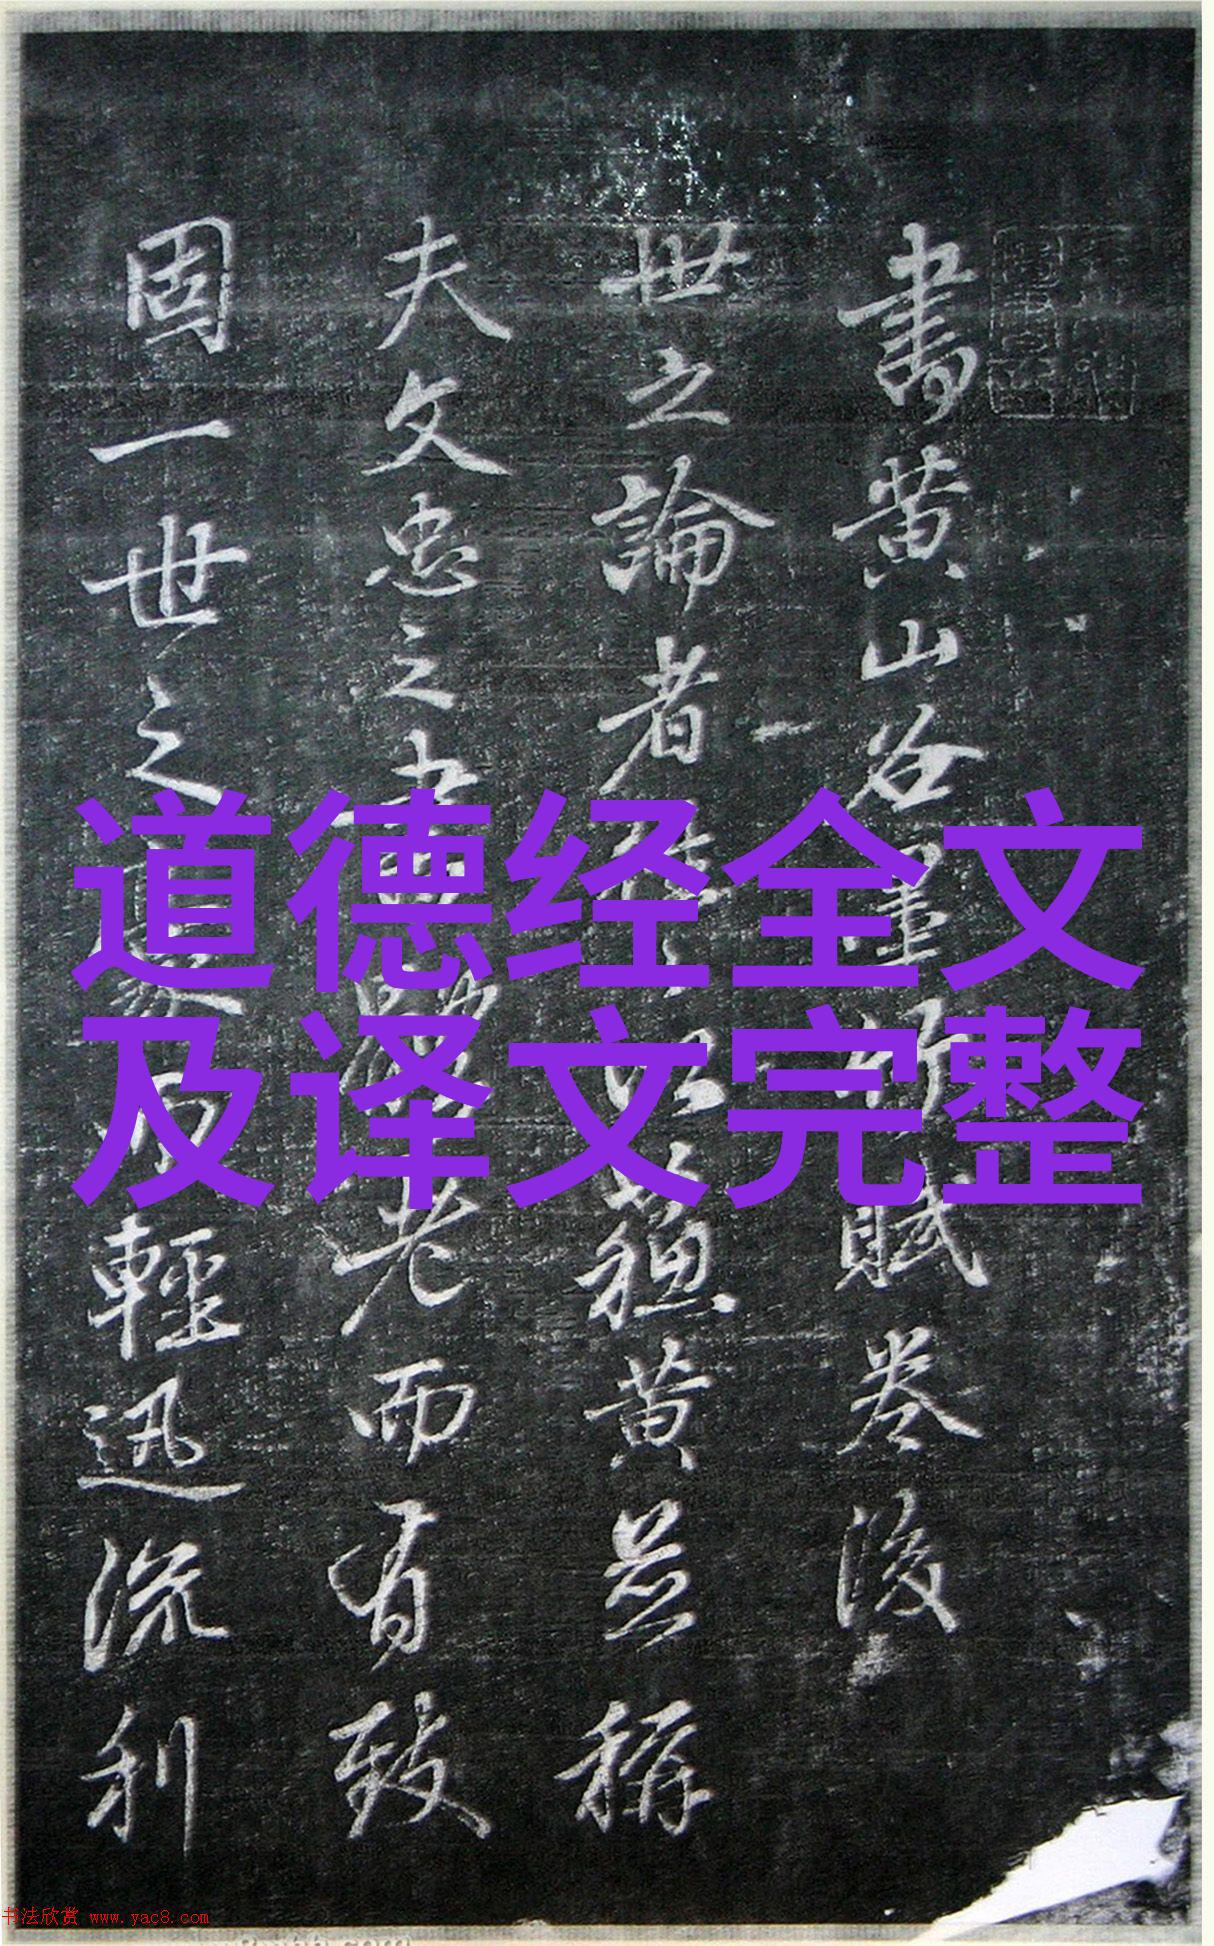 書黄山谷墨竹賦卷後
世之論者
蘓黄並稱
夫文忠之書
老而有致
固一世之
輕迅流利
道德经全文
及译文完整
书法欣赏 www.yac8.com